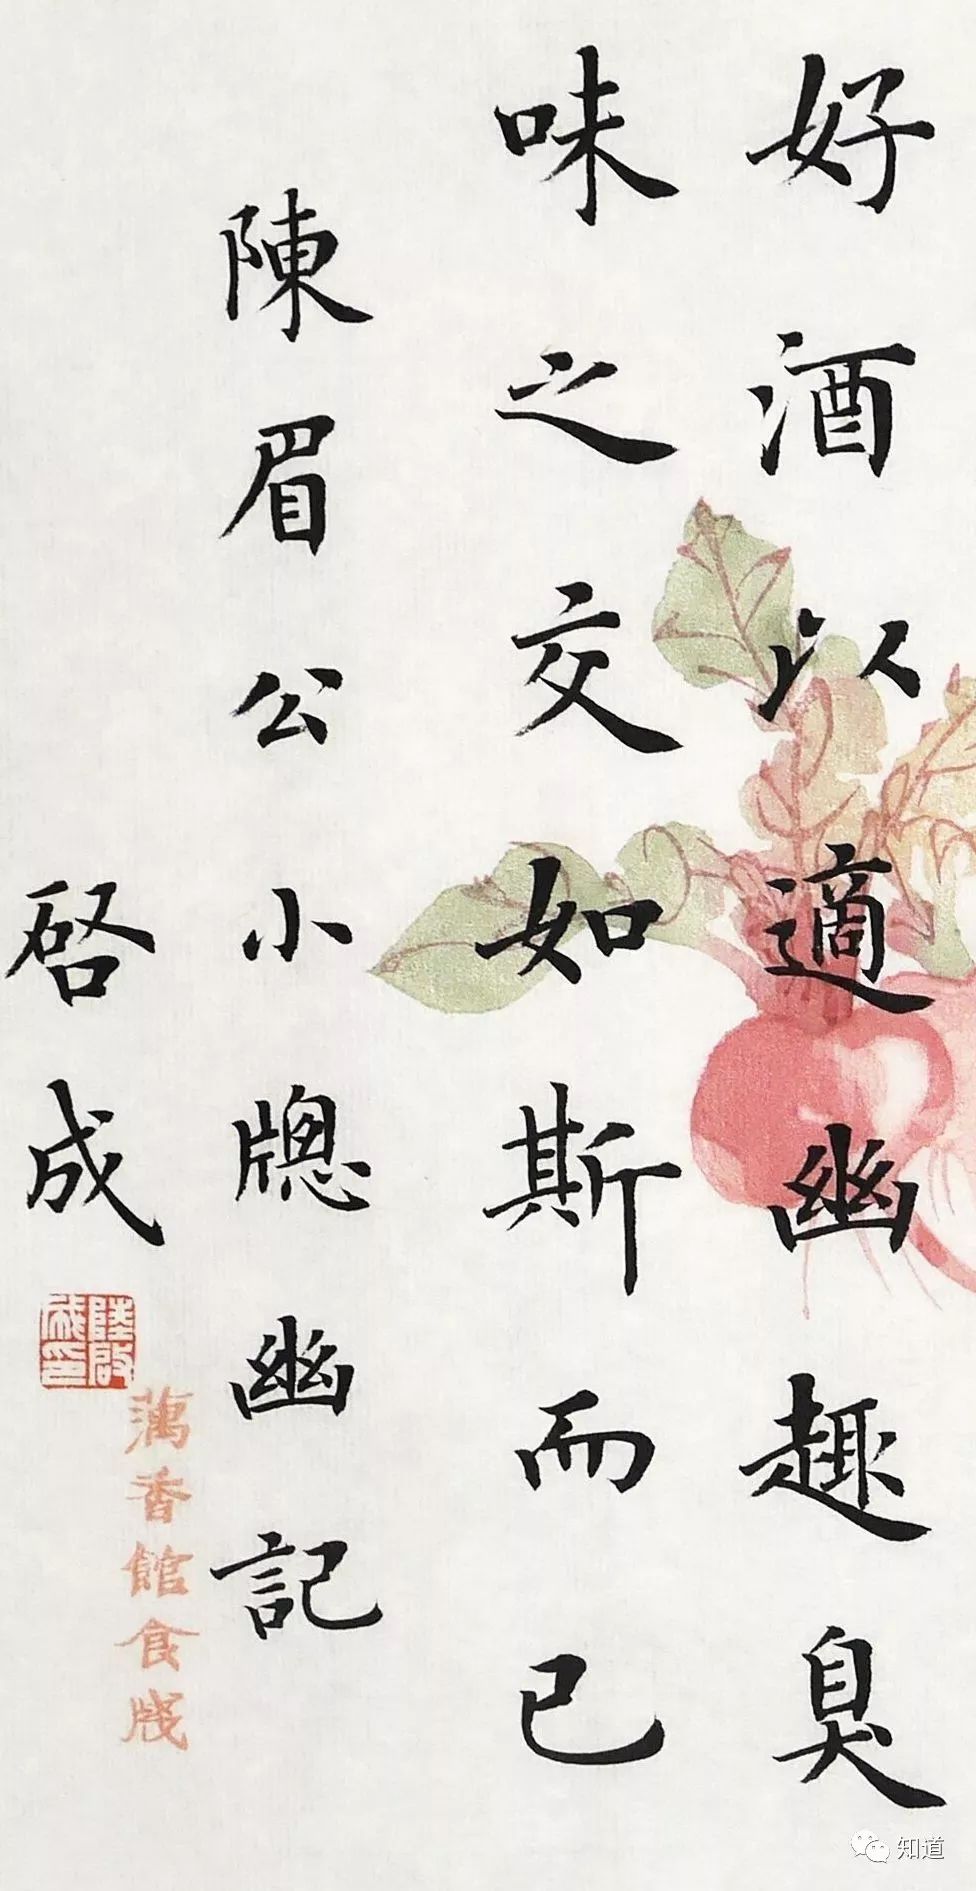 好酒以適幽趣臭
味之交如斯而已
陳眉公小牕幽記
啓成
陸啟成印
萬香館食牋
知道